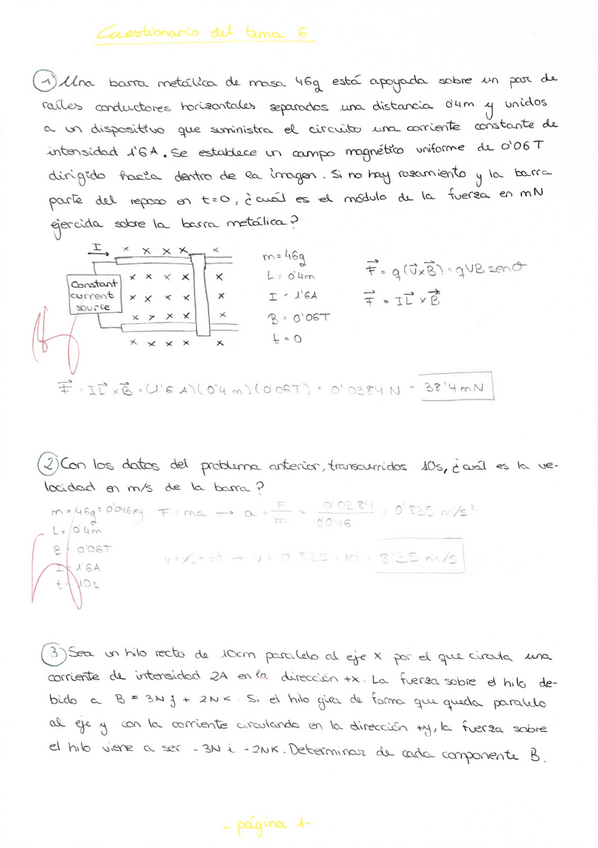 Cuestionario del tema 6
1) Una barra metálica de masa 46g está apoyada sobre un par de
raíles conductores horizontales separados una distancia 0'4m y unidos
a un dispositivo que suministra el circuito una corriente constante de
intensidad 1'6A. Se establece un campo magnético uniforme de 0'06T
dirigido hacia dentro de la imagen. Si no hay rozamiento y la barra
parte del reposo en t=0, ¿cuál es el módulo de la fuerza en mN
ejercida sobre la barra metálica?
I
x x x x x
Constant x x x x x
current x x x x x
source x x x x x
x x x x x
m = 46g
L = 0'4m
I = 1'6A
B = 0'06T
t = 0
F = q(v×B) = qVB senθ
F = IL × B
F = IL × B = (1'6 A)(0'4 m)(0'06T) = 0'0384 N = 38'4 mN
2) Con los datos del problema anterior, transcurridos 10s, ¿cuál es la ve-
locidad en m/s de la barra?
m = 46g = 0'046kg F = ma → a = F/m = 0'0384/0'046 = 0'835 m/s²
L = 0'4m
B = 0'06T
I = 1'6A
t = 10s
v = v₀ + at → v = 0'835 · 10 = 8'35 m/s
3) Sea un hilo recto de 10cm paralelo al eje x por el que circula una
corriente de intensidad 2A en la dirección +x. La fuerza sobre el hilo de-
bido a B = 3N j + 2N k. Si el hilo gira de forma que queda paralelo
al eje y con la corriente circulando en la dirección +y, la fuerza sobre
el hilo viene a ser -3N i -2NK. Determinar de cada componente B.
- página 1-